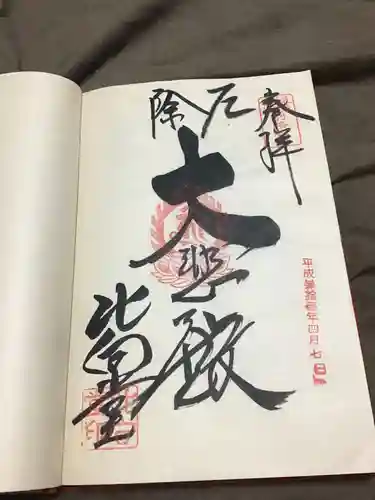 奉拝
厄除
大悲殿
北向堂
平成 拾 年四月七日